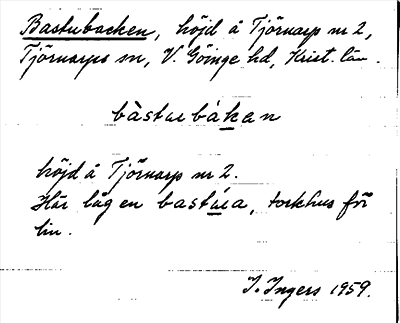 Bastubacken, höjd å Tjörnarp nr 2,
Tjörnarps sn, V. Göinge hd, Krist. län.
bàstuebákan
höjd å Tjörnarp nr 2.
Här låg en bastúa, torkhus för
lin.
I. Ingers 1959.